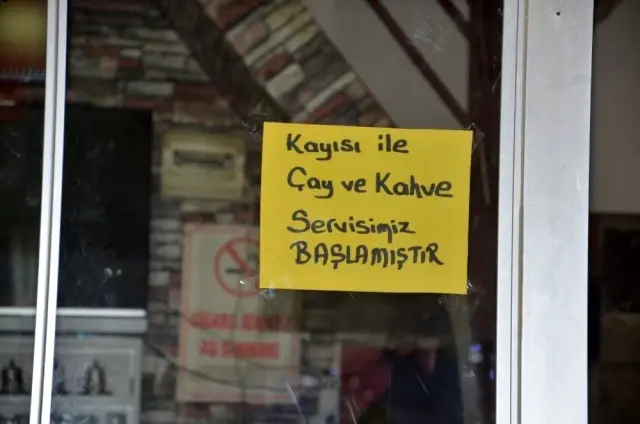 Kayısı ile
Çay ve Kahve
Servisimiz
BAŞLAMIŞTIR
NO SMOKING